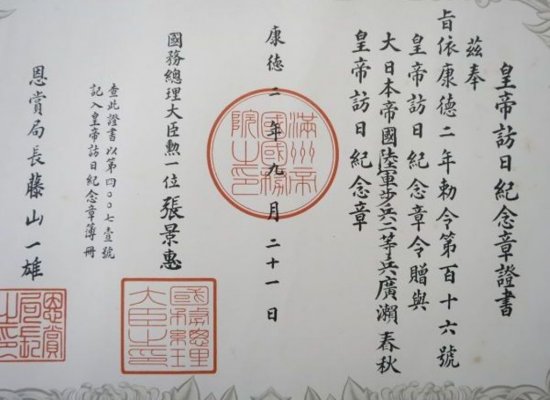 皇帝訪日紀念章證書
茲奉
旨依康德二年勅令第百十六號
皇帝訪日紀念章令贈與
大日本帝國陸軍步兵二等兵廣瀨春秋
皇帝訪日紀念章
康德二年九月二十一日
滿洲帝
國國務
院之印
國務總理大臣勲一位張景惠
國務總理
大臣之印
查此證書以第四〇〇七壹號
記入皇帝訪日紀念章簿冊
恩賞局長藤山一雄
恩賞
局長
之印